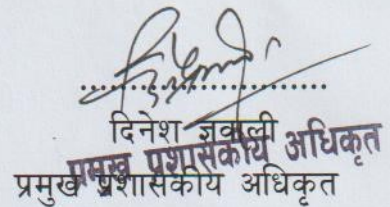 दिनेश ज्ञवाली
प्रमुख प्रशासकीय अधिकृत
प्रमुख प्रशासकीय अधिकृत